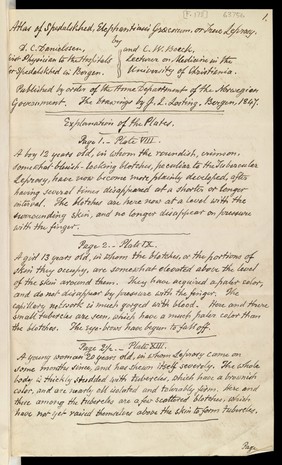 1.
Atlas of Spedalskhed, Elephantiasis Græcorum, or True Leprosy.
by
D. C. Danielssen, and C. W. Boeck,
Physician to the Hospitals Lecturer on Medicine in the
for Spedalskhed in Bergen. University of Christiania.
Published by order of the Home Department of the Norwegian
Government. The Drawings by J. L. Losting, Bergen, 1847.
Explanation of the Plates.
Page 1. – Plate VIII.
A boy 12 years old, in whom the roundish, crimson,
somewhat bluish-looking blotches, peculiar to the Tubercular
Leprosy, have now become more plainly developed, after
having several times disappeared at a shorter or longer
interval. The blotches are here now at a level with the
surrounding skin, and no longer disappear on pressure
with the finger.
Page 2. – Plate IX.
A girl 13 years old, in whom the blotches, or the portions of
skin they occupy, are somewhat elevated above the level
of the skin around them. They have acquired a paler color,
and do not disappear by pressure with the finger. The
capillary network is much gorged with blood. Here and there
small tubercles are seen, which have a much paler color than
the blotches. The eye-brows have begun to fall off.
Page 2½. – Plate XIII.
A young woman 20 years old, in whom Leprosy came on
some months since, and has shewn itself severely. The whole
body is thickly studded with tubercles, which have a brownish
color, and are nearly all isolated and tolerably firm. Here and
there among the tubercles are a few scattered blotches, which
have not yet raised themselves above the skin to form tubercles.
Page